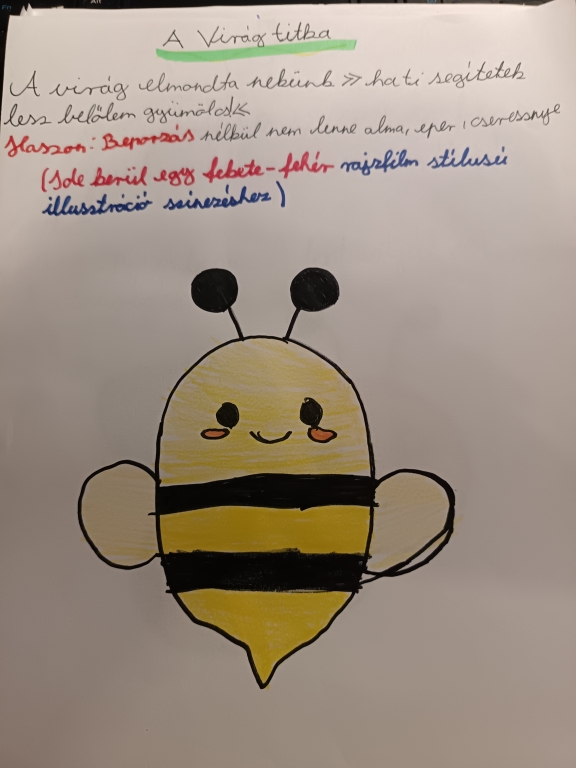 A Virág titka
A virág elmondta nekünk >> ha ti segítetek
lesz belőlem gyümölcs<<
Haszon: Beporzás nélkül nem lenne alma, eper, cseressnye
(Ide kerül egy fekete-fehér rajzfilm stílusú
illusztráció színezéshez)